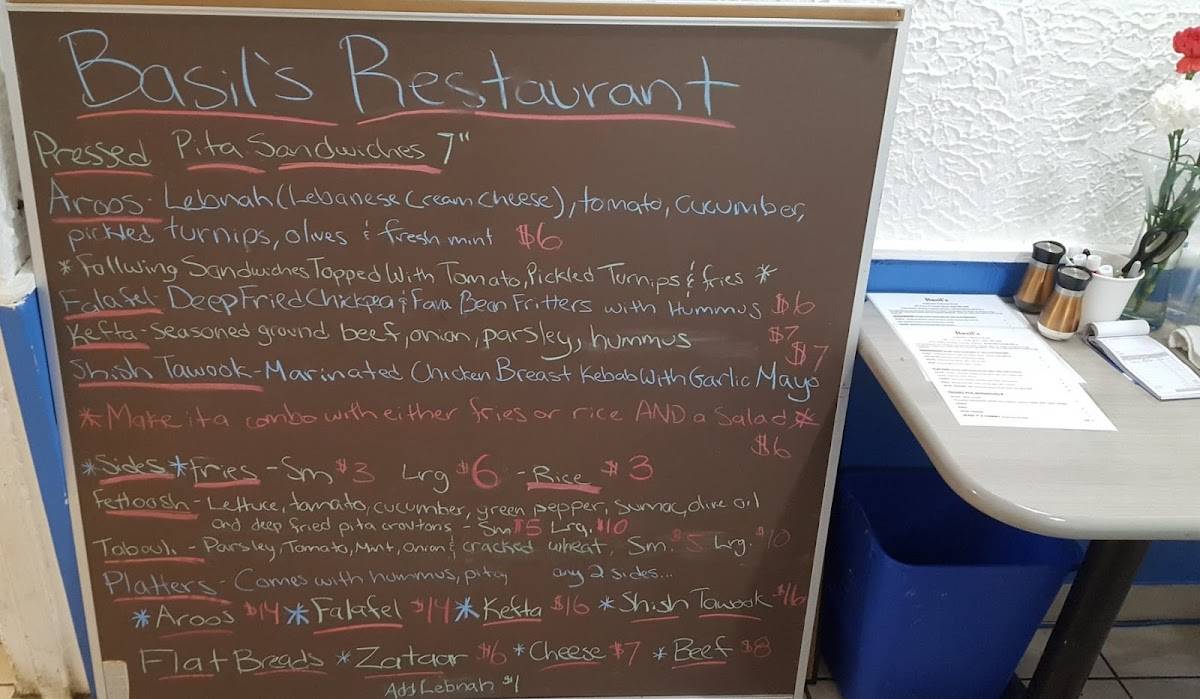 Basil's Restaurant
Pressed Pita Sandwiches 7"
Aroos - Lebnah (Lebanese Cream Cheese), tomato, cucumber,
pickled turnips, olives & fresh mint $6
* Follwing Sandwiches Topped With Tomato, Pickled Turnips & fries *
Falafel - Deep Fried Chickpea & Fava Bean Fritters with Hummus $6
Kefta - Seasoned ground beef, onion, parsley, hummus $7
Shish Tawook - Marinated Chicken Breast Kebab With Garlic Mayo $7
* Make it a combo with either fries or rice AND a Salad *
$6
* Sides * Fries - Sm $3 Lrg $6 - Rice $3
Fettoush - Lettuce, tomato, cucumber, green pepper, sumac, olive oil
and deep fried pita croutons - Sm $5 Lrg. $10
Tabouli - Parsley, Tomato, Mint, Onion & cracked wheat. Sm. $5 Lrg. $10
Platters - Comes with hummus, pita, any 2 sides...
* Aroos $14 * Falafel $14 * Kefta $16 * Shish Tawook $16
Flat Breads * Zataar $6 * Cheese $7 * Beef $8
Add Lebnah $1
Basil's
Basil's